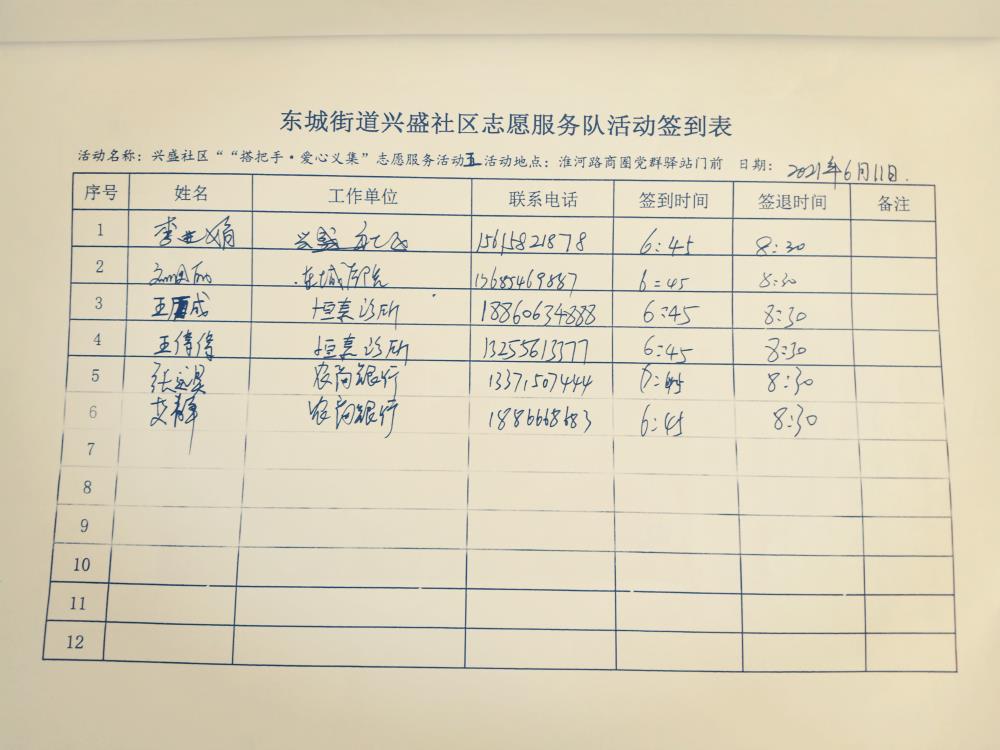 东城街道兴盛社区志愿服务队活动签到表
活动名称：兴盛社区““搭把手·爱心义集”志愿服务活动五 活动地点：淮河路商圈党群驿站门前 日期：2021年6月11日.
序号 姓名 工作单位 联系电话 签到时间 签退时间 备注
1 李 娟 兴盛社区 15615821878 6:45 8:30
2 东城 15685469887 6:45 8:30
3 王 成 恒真诊所 18860634888 6:45 8:30
4 王倩倩 恒真诊所 13255613377 6:45 8:30
5 张 昊 农商银行 13371507444 6:45 8:30
6 艾静 农商银行 1886668683 6:45 8:30
7
8
9
10
11
12